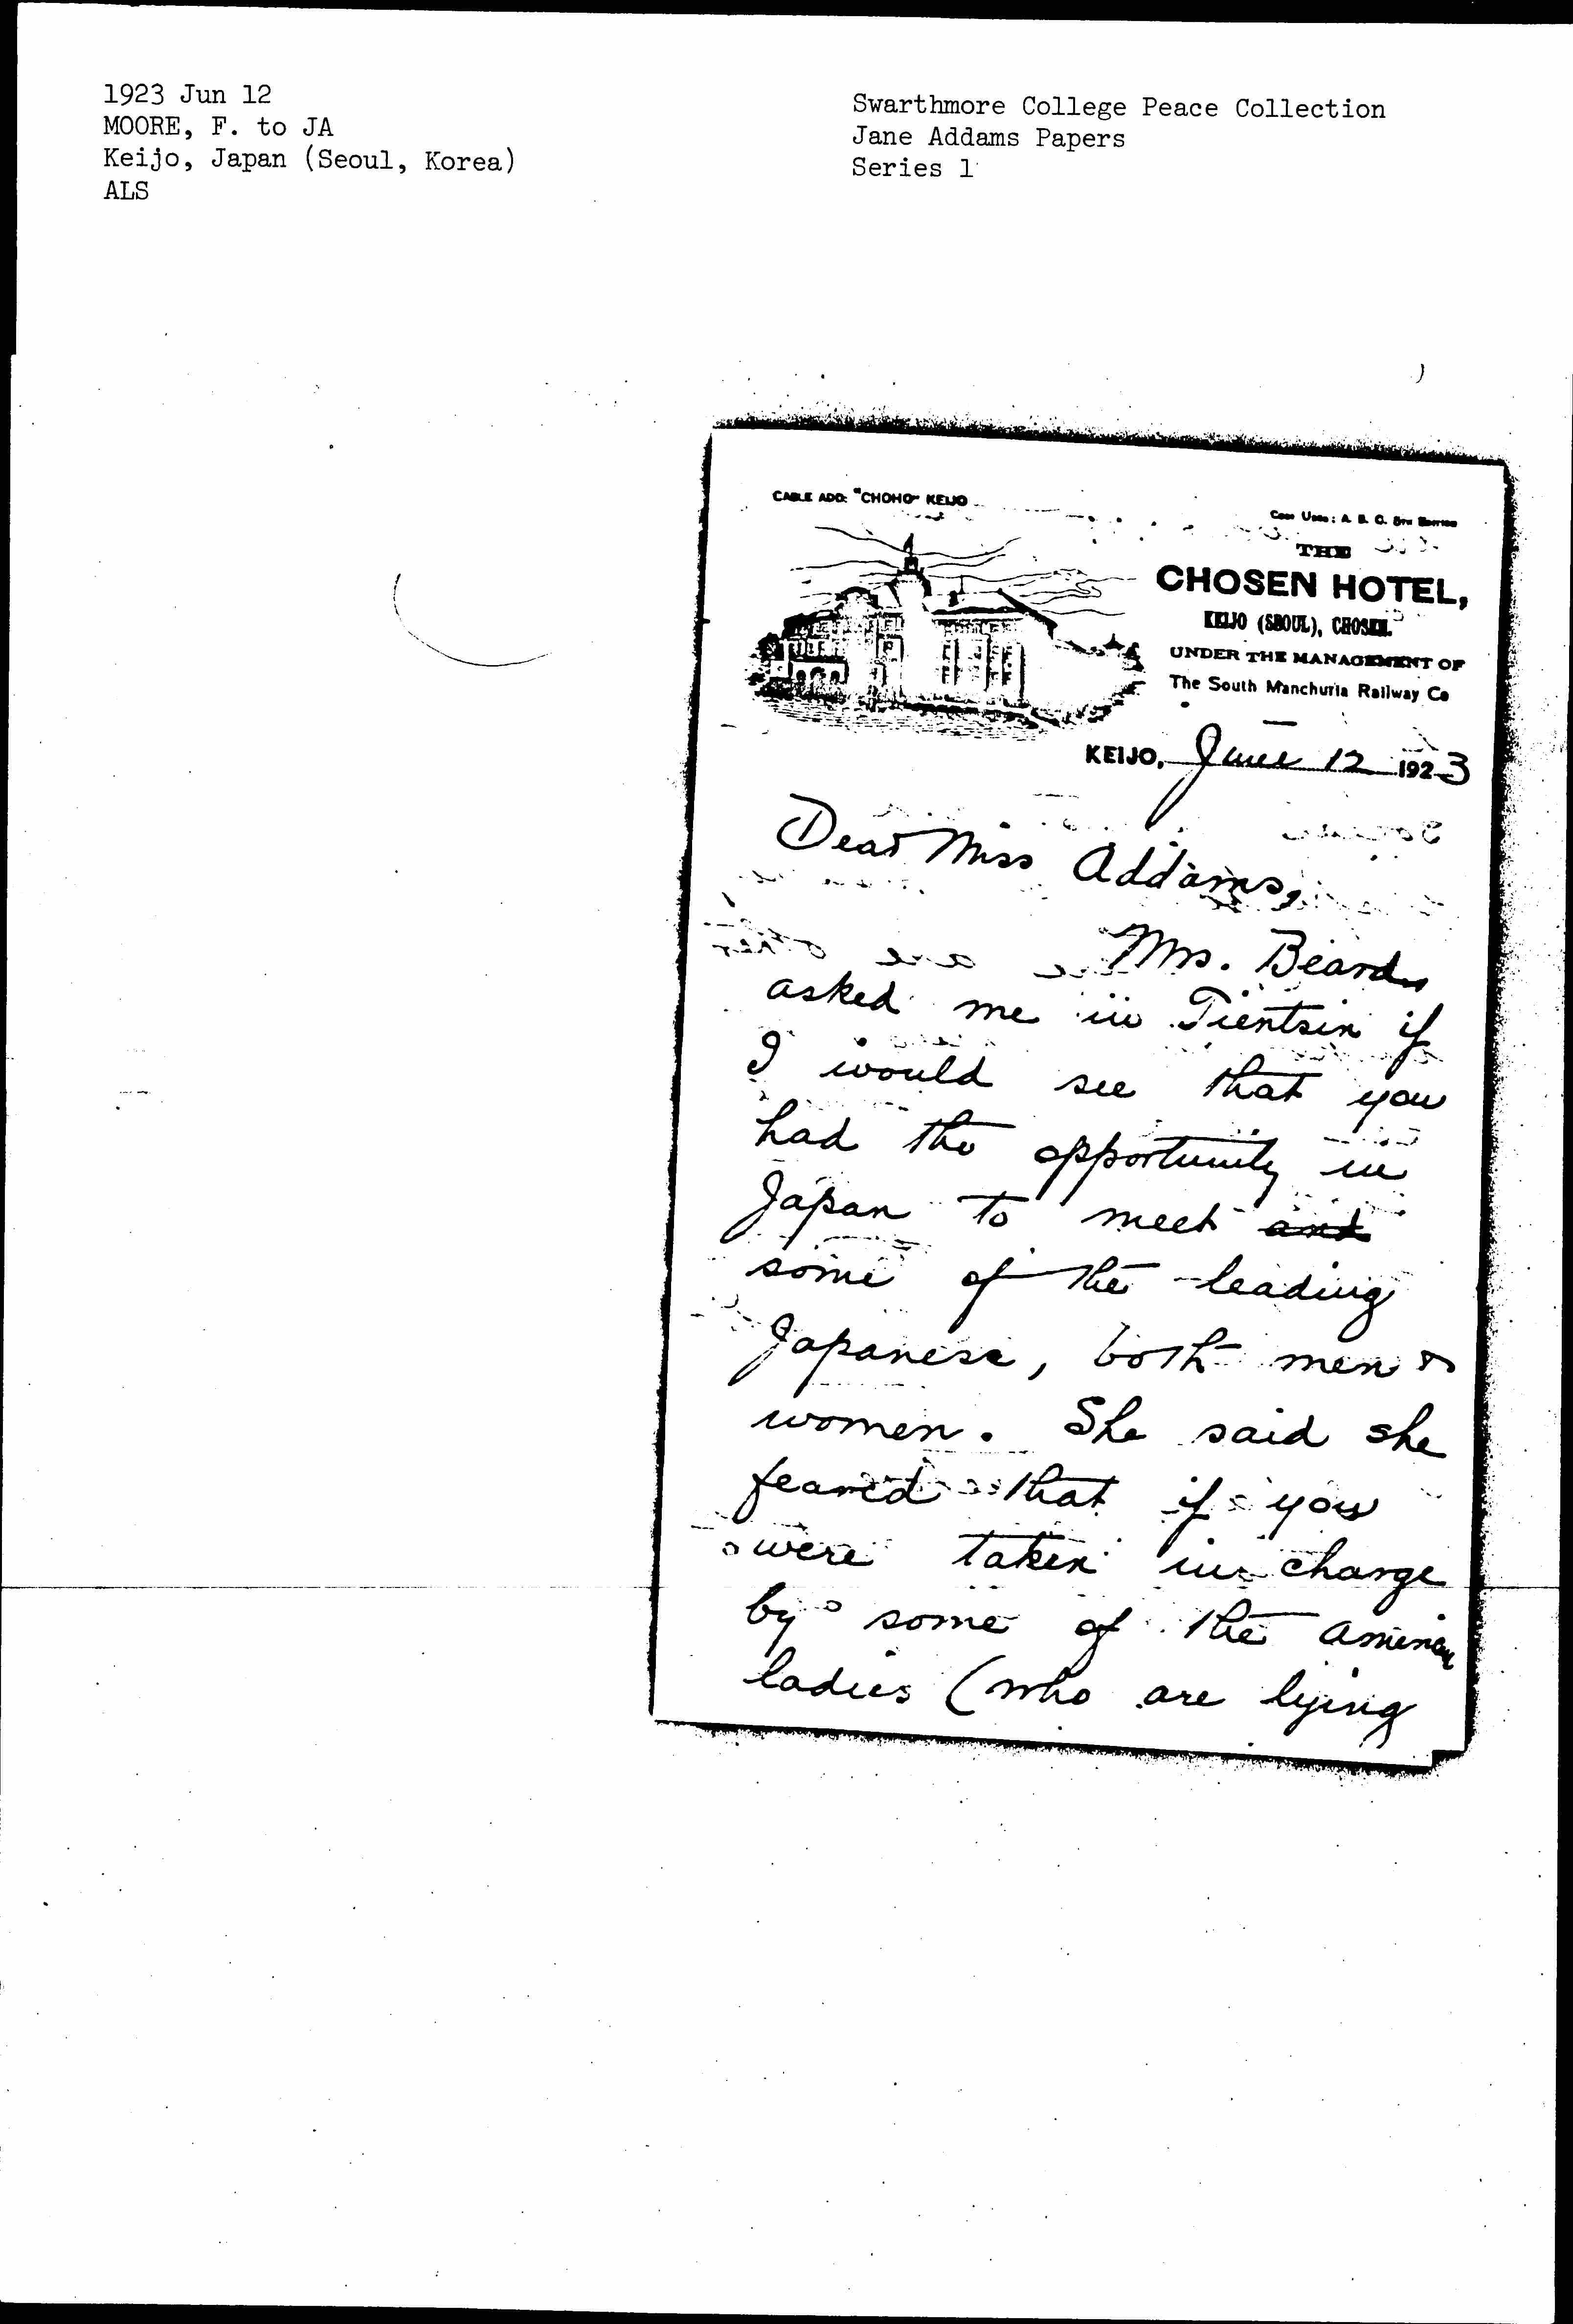 1923 Jun 12
MOORE, F. to JA
Keijo, Japan (Seoul, Korea)
ALS
Swarthmore College Peace Collection
Jane Addams Papers
Series 1
CABLE ADD: "CHOHO" KEIJO
CODE USED: A. B. C. 5TH EDITION
THE
CHOSEN HOTEL,
KEIJO (SEOUL), CHOSEN.
UNDER THE MANAGEMENT OF
The South Manchuria Railway Co
KEIJO, June 12 1923
Dear Miss Addams,
Mrs. Beard
asked me in Tientsin if
I would see that you
had the opportunity in
Japan to meet and
some of the leading
Japanese, both men &
women. She said she
feared that if you
were taken in charge
by some of the American
ladies (who are lying